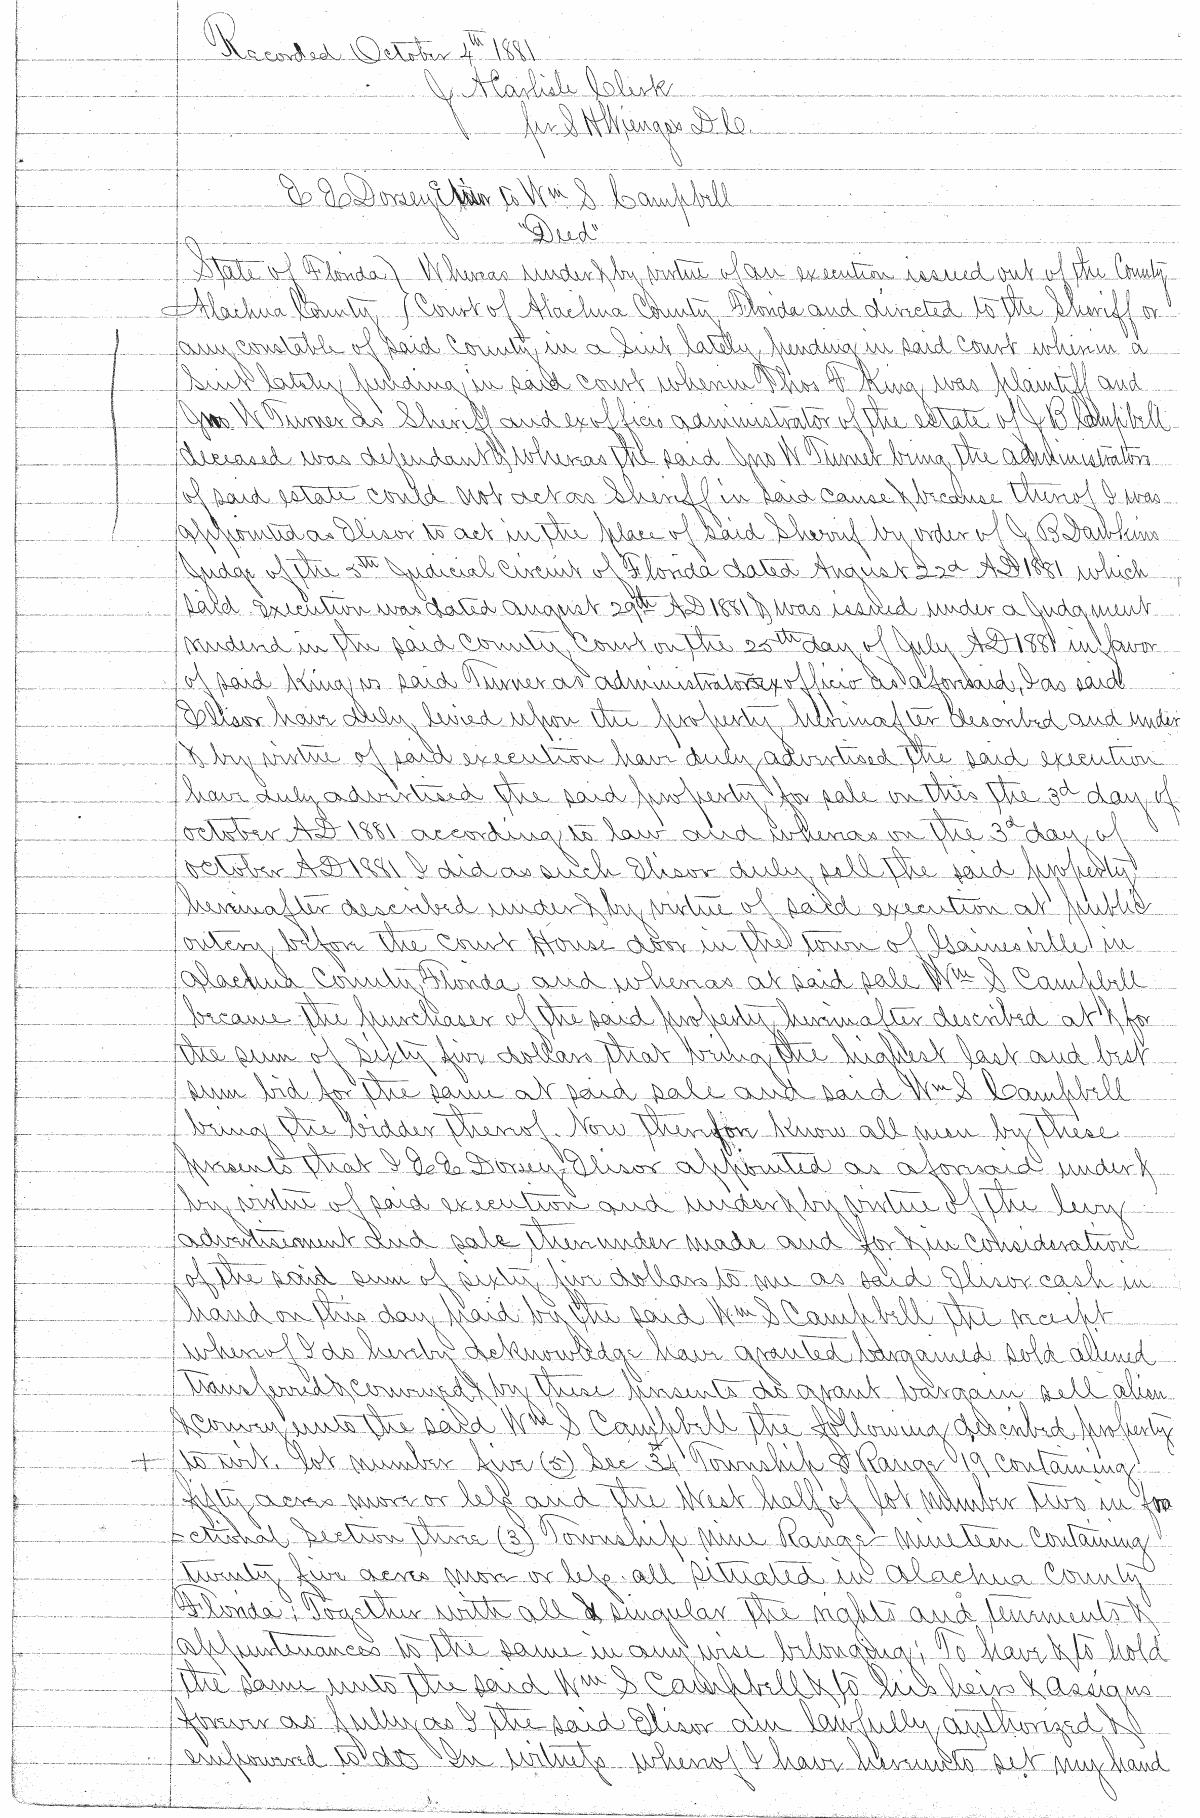 Recorded October 4th 1881
J A Carlisle Clerk
per S H Wienges D.C.
E E Dorsey Elisor to Wm S Campbell
"Deed"
State of Florida) Whereas under & by virtue of an execution issued out of the County
Alachua County (Court of Alachua County Florida and directed to the Sheriff or
any constable of said County in a Suit lately pending in said Court wherein a
Suit lately pending in said court wherein Thos F King was plaintiff and
Jno W Turner as Sheriff and exofficio administrator of the estate of J B Campbell
deceased was defendant & whereas the said Jno W Turner being the administrator
of said estate could not act as Sheriff in said cause & because thereof I was
appointed as Elisor to act in the place of said Sherrif by order of J B Dawkins
Judge of the 5th Judicial Circuit of Florida dated August 22d AD 1881 which
said execution was dated august 29th AD 1881 & was issued under a Judgment
renderd in the said County Court on the 25th day of July AD 1881 in favor
of said King vs said Turner as administrator exofficio as aforesaid, I as said
Elisor have duly levied upon the property hereinafter described and under
& by virtue of said execution have duly advertised the said execution
have duly advertised the said property for sale on this the 3d day of
october AD 1881 according to law and whereas on the 3d day of
october AD 1881 I did as such Elisor duly sell the said property
hereinafter described under & by virtue of said execution at public
outcry before the Court House door in the town of Gainesville in
Alachua County Florida and whereas at said sale Wm S Campbell
became the purchaser of the said property hereinafter described at & for
the sum of Sixty five dollars that being the highest last and best
sum bid for the same at said sale and said Wm S Campbell
being the bidder thereof. Now therefore know all men by these
presents that I E E Dorsey Elisor appointed as aforesaid under &
by virtue of said execution and under & by virtue of the levy
advertisement and sale thereunder made and for & in Consideration
of the said sum of sixty five dollars to me as said Elisor cash in
hand on this day paid by the said Wm S Campbell the receipt
whereof I do hereby acknowledge have granted bargained sold aliened
transferred & conveyed & by these presents do grant bargain sell alien
& convey unto the said Wm S Campbell the following described property
+ to wit. Lot number five (5) Sec 34 Township 8 Range 19 containing
fifty acres more or less and the West half of lot number two in fra
-ctional Section three (3) Township nine Range nineteen containing
twenty five acres more or less all situated in Alachua County
Florida; Together with all & singular the rights and tenements &
appurtenances to the same in any wise belonging; To have & to hold
the same unto the said Wm S Campbell & to his heirs & assigns
forever as fully as I the said Elisor am lawfully authorized &
empowered to do In witness whereof I have hereunto set my hand